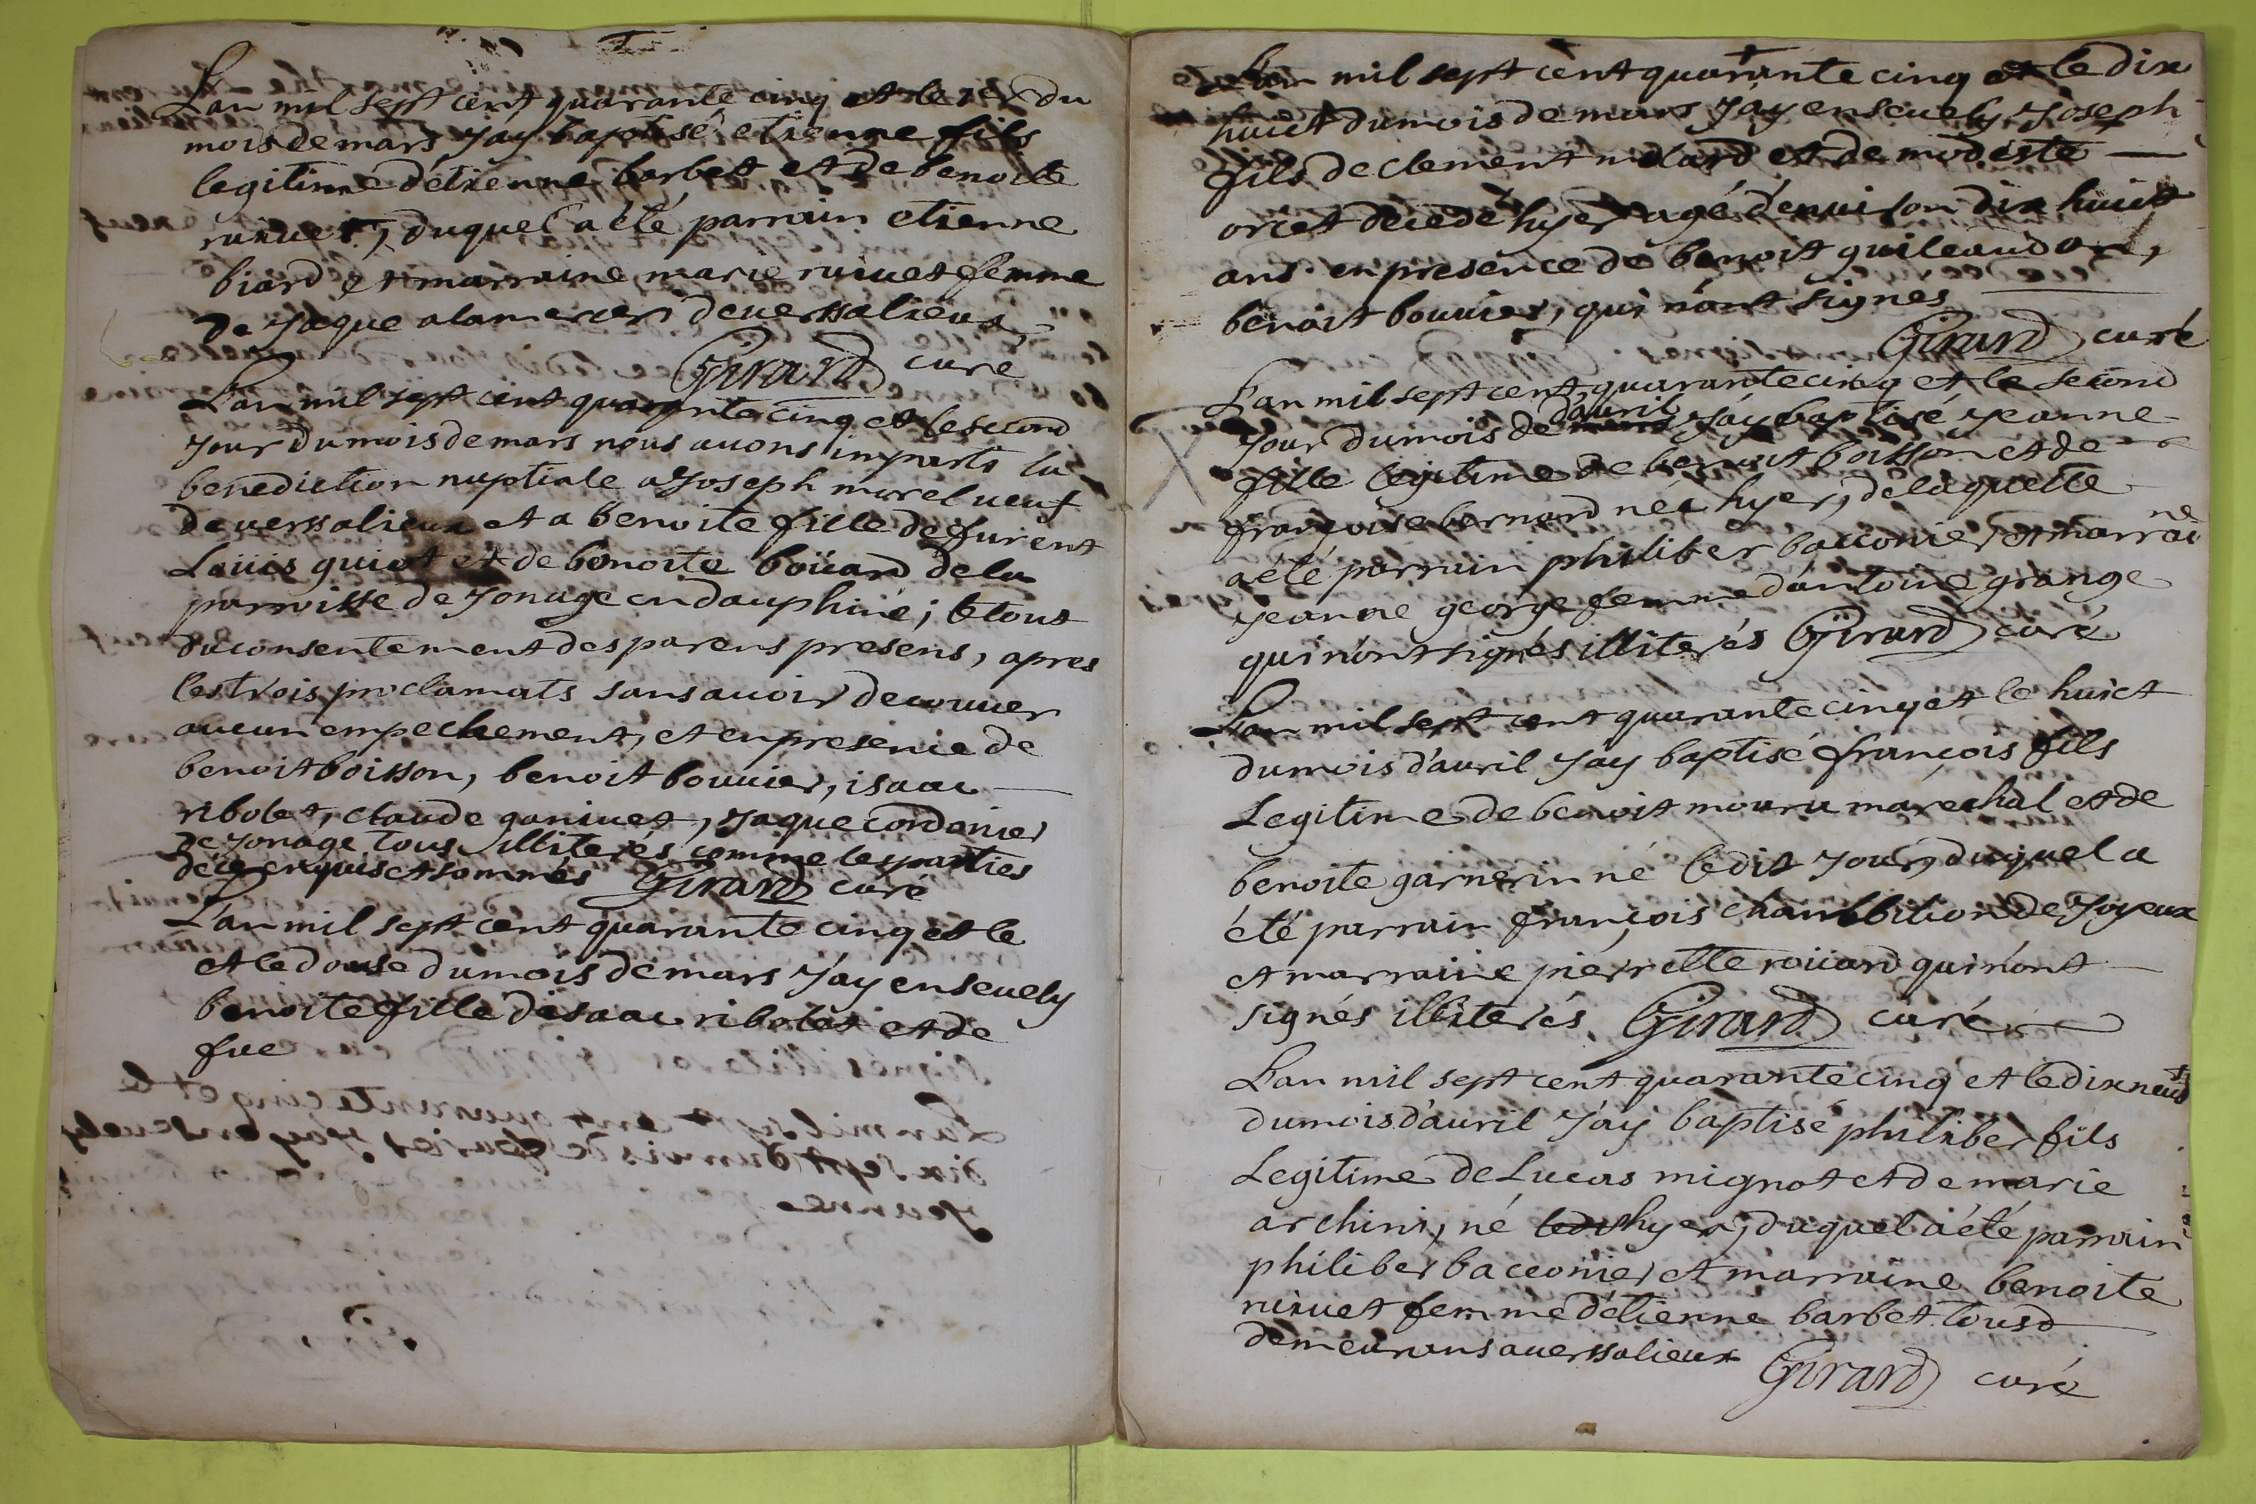 L'an mil sept cent quarante cinq et le 1er du
mois de mars J'ay baptisé etienne fils
legitime d'etienne barbet et de benoite
ruivet, duquel a été parrain etienne
biard et marraine marie ruivet femme
de Jaque alamercery de versalieux,
Girard curé
L'an mil sept cent quarante cinq et le second
Jour du mois de mars nous avons imparti la
benediction nuptiale a Joseph morel veuf
de versalieux et a benoite fille de furent
Loüis guiot et de benoite boüard de la
parroisse de Jonage en dauphiné; le tout
du consentement des parens presens, apres
les trois proclamats sans avoir decouver
aucun empechement, et en presence de
benoit boisson, benoit bouvier, isaac
ribolet, claude ganivet, Jaque cordonier
de Jonage tous illiterés comme les parties
de ce enquis et sommés Girard curé
L'an mil sept cent quarante cinq et le
et le douse du mois de mars J'ay ensevely
benoite fille d'isaac ribolet et de
fue
L'an mil sept cent quarante cinq et le dix
huict du mois de mars J'ay ensevely Joseph
fils de clement milard et de modeste
orcet decedé hyer agé d'environ dix huict
ans en presence de benoit guileaudon,
benoit bouvier, qui n'ont signés
Girard curé
L'an mil sept cent quarante cinq et le second
d'avril
Jour du mois de mars J'ay baptisé Jeanne
fille legitime de benoit boisson et de
françoise bernard née hyer, de laquelle
a été parrain philiber bacconier, et marraine
Jeanne george femme d'antoine grange
qui n'ont signés illiterés Girard curé
L'an mil sept cent quarante cinq et le huict
du mois d'avril J'ay baptisé françois fils
Legitime de benoit mouru marechal et de
benoite garnerin né ledit Jour, duquel a
été parrain françois chambition de Joyeux
et marraine pierrette roüard qui n'ont
signés illiterés Girard curé
L'an mil sept cent quarante cinq et le dix neuf
du mois d'avril J'ay baptisé philiber fils
Legitime de Lucas mignot et de marie
archini, né ledit hyer, duquel a été parrain
philiber bacconier et marraine benoite
ruivet femme d'etienne barbet tous
demeurans a versalieux Girard curé